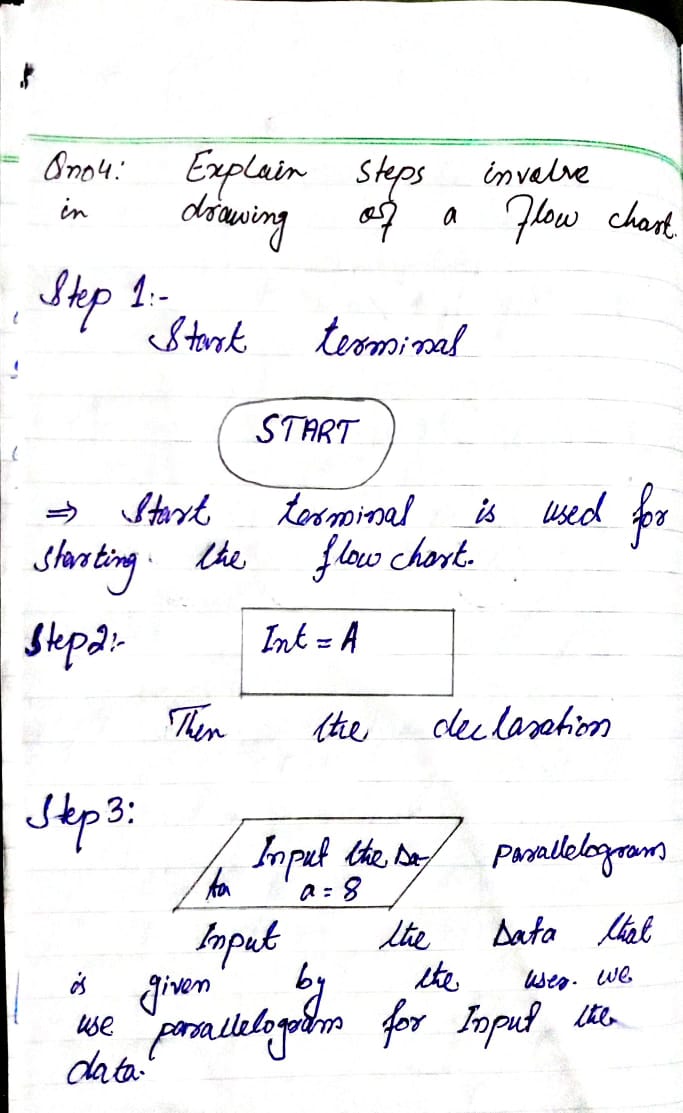 Qno4: Explain steps involve
in drawing of a Flow chart.
Step 1:-
Start terminal
START
⇒ Start terminal is used for
starting. the flow chart.
Step2:-
Int = A
Then the declaration
Step 3:
Input the Da-
ta a = 8
parallelogram
Input the Data that
is given by the user. we
use parallelogram for Input the
data.